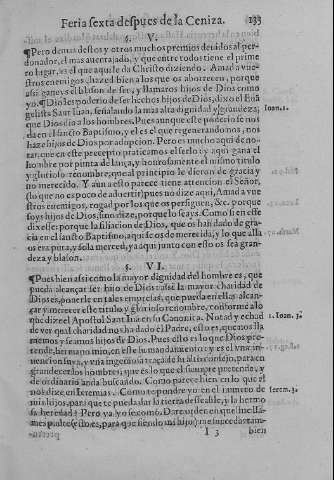 Feria sexta despues de la Ceniza. 133
§. V.
¶Pero demas destos y otros muchos premios deuidos al per-
donador, el mas auentajado, y que entre todos tiene el primero
lugar, es el que aquella da Christo diziendo. Amad a vue-
stros enemigos, hazed bien a los que os aborrecen, porque
assi ganeys el blason de ser, y llamaros hijos de Dios como
yo. ¶Dioles poderio de ser hechos hijos de Dios, dixo el Euá
gelista Sant Iuan, señalando la mas alta dignidad y grandeza, Ioan.1.
que Dios dio a los hombres. Pues aunque este poderio se nos
da en el sancto Baptismo, y el es el que regenerandonos, nos
haze hijos de Dios por adopcion. Pero es mucho aqui de no-
tar, que en este precepto
hombre por punta de lança, y honrosamente el mismo titulo
y glorioso renombre, que al principio le dieron de gracia y
no merecido. Y aun a esto parece tiene atencion el Señor,
(lo que no es poco de aduertir) pues no dize aqui, Amad a vue
stros enemigos, rogad por los que os persiguen, &c. porque
soys hijos de Dios, sino dize, porque lo seays. Como si en este
dixesse: porque la filiacion de Dios, que os han dado de gra-
cia en el sancto Baptismo, aqui se os de merecida, y lo que alla
era pura, y sola merced, ya aqui junto con esto os sea gran-
deza y blason.
§. VI.
¶Pues bien assi como la mayor dignidad del hombre es, que
pueda alcançar ser hijo de Dios: assi la mayor charidad de
Dios es, ponerle en tales empresas, que pueda en ellas alcan-
çar y merecer este titulo y glorioso renombre, conforme a lo
que dize el Apostol Sant Iuā en su Canonica. Notad y echad 1. Ioan. 3.
de ver qual charidad nos ha dado el Padre, esto es, que nos lla
memos y seamos hijos de Dios. Pues esto es lo que Dios pre-
tende, hermano mio, en este su mandamiento: y es el vna in-
uencion suya, y vna ingeniosa traça de su alto consejo, para en
grandecer los hombres: que es lo que el siempre pretende, y
de ordinario anda buscando. Como parece bien en lo que el
nos dize en Ieremias. Como te pondre yo en el numero de Ierem. 3.
mis hijos, para que te pueda dar la tierra desseable, y la hermo
sa heredad? Pero ya yo se como. Dare orden en que me lla-
mes padre (esto es, para que siendo mi hijo)
I 3 bien